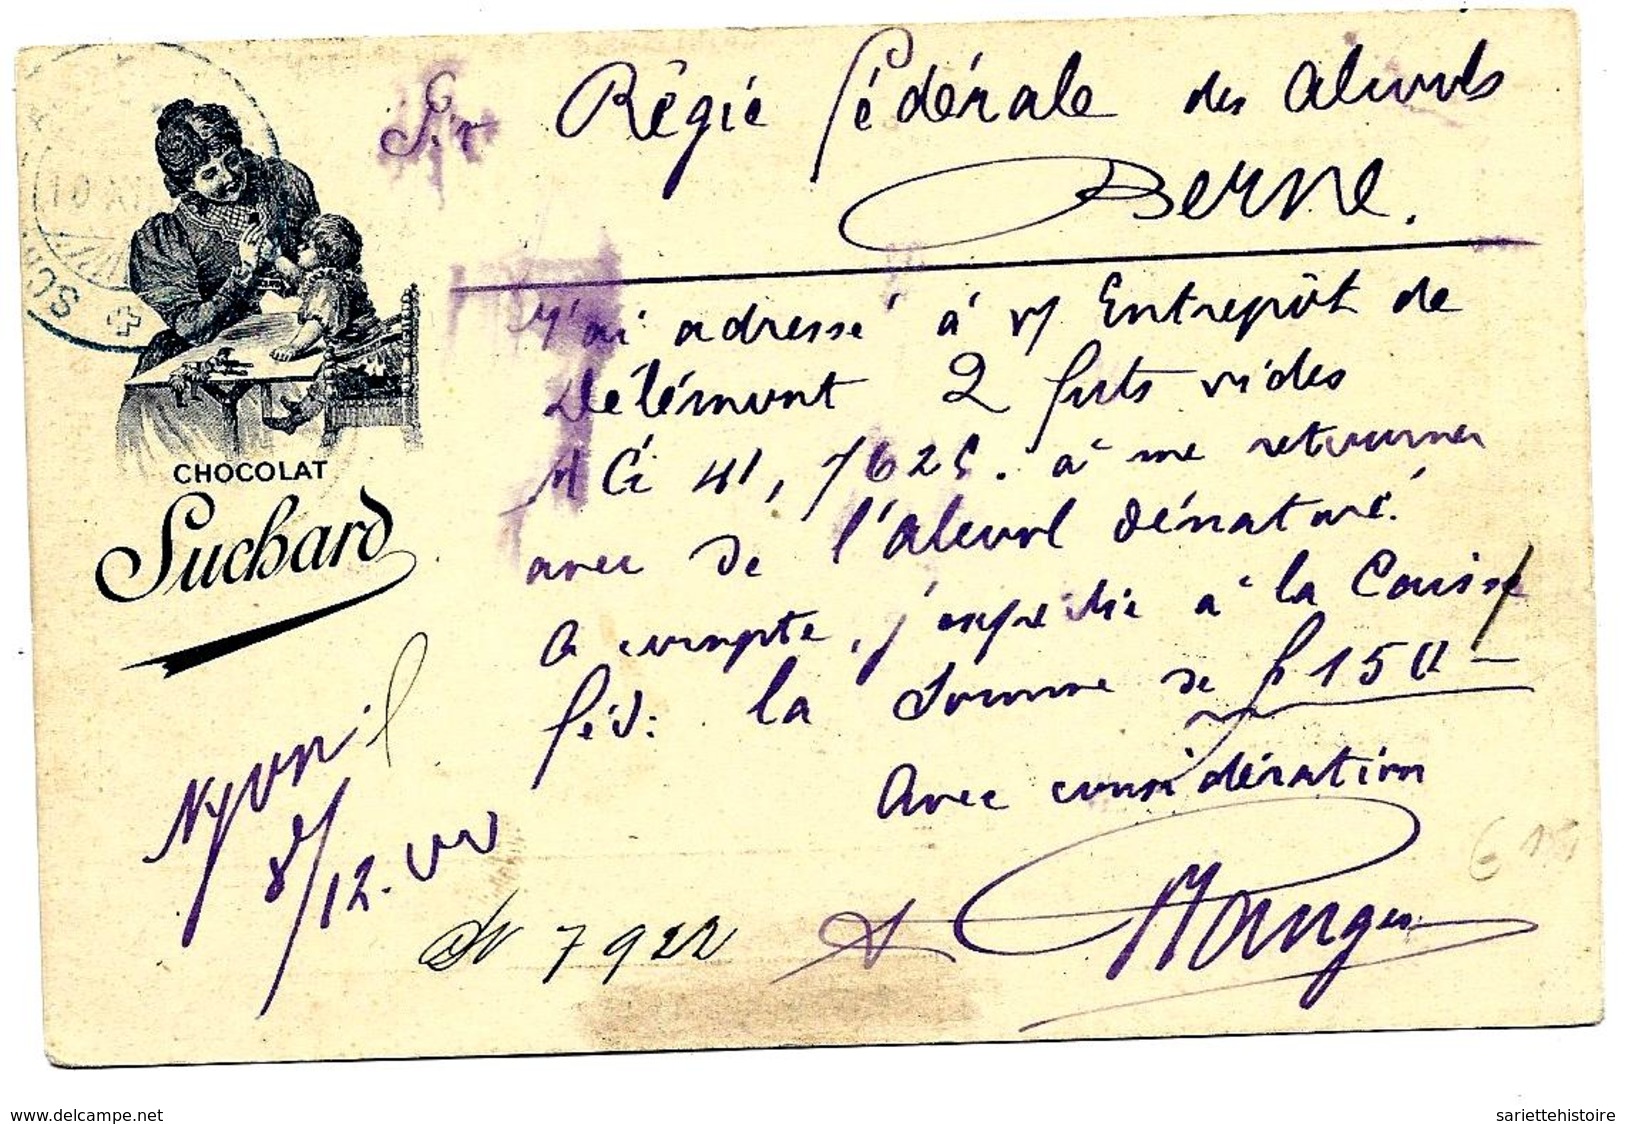 Régie fédérale des Alcools
Berne.
J'ai adressé à v/ Entrepôt de
Delémont 2 futs vides
41, 7625. à me retourner
avec de l'alcool dénaturé.
A compte, j'expédie à la Caisse
féd: la Somme de f 150 —
Avec considération
CHOCOLAT
Suchard
8/12.00
7922
10 XII
www.delcampe.net
sariettehistoire